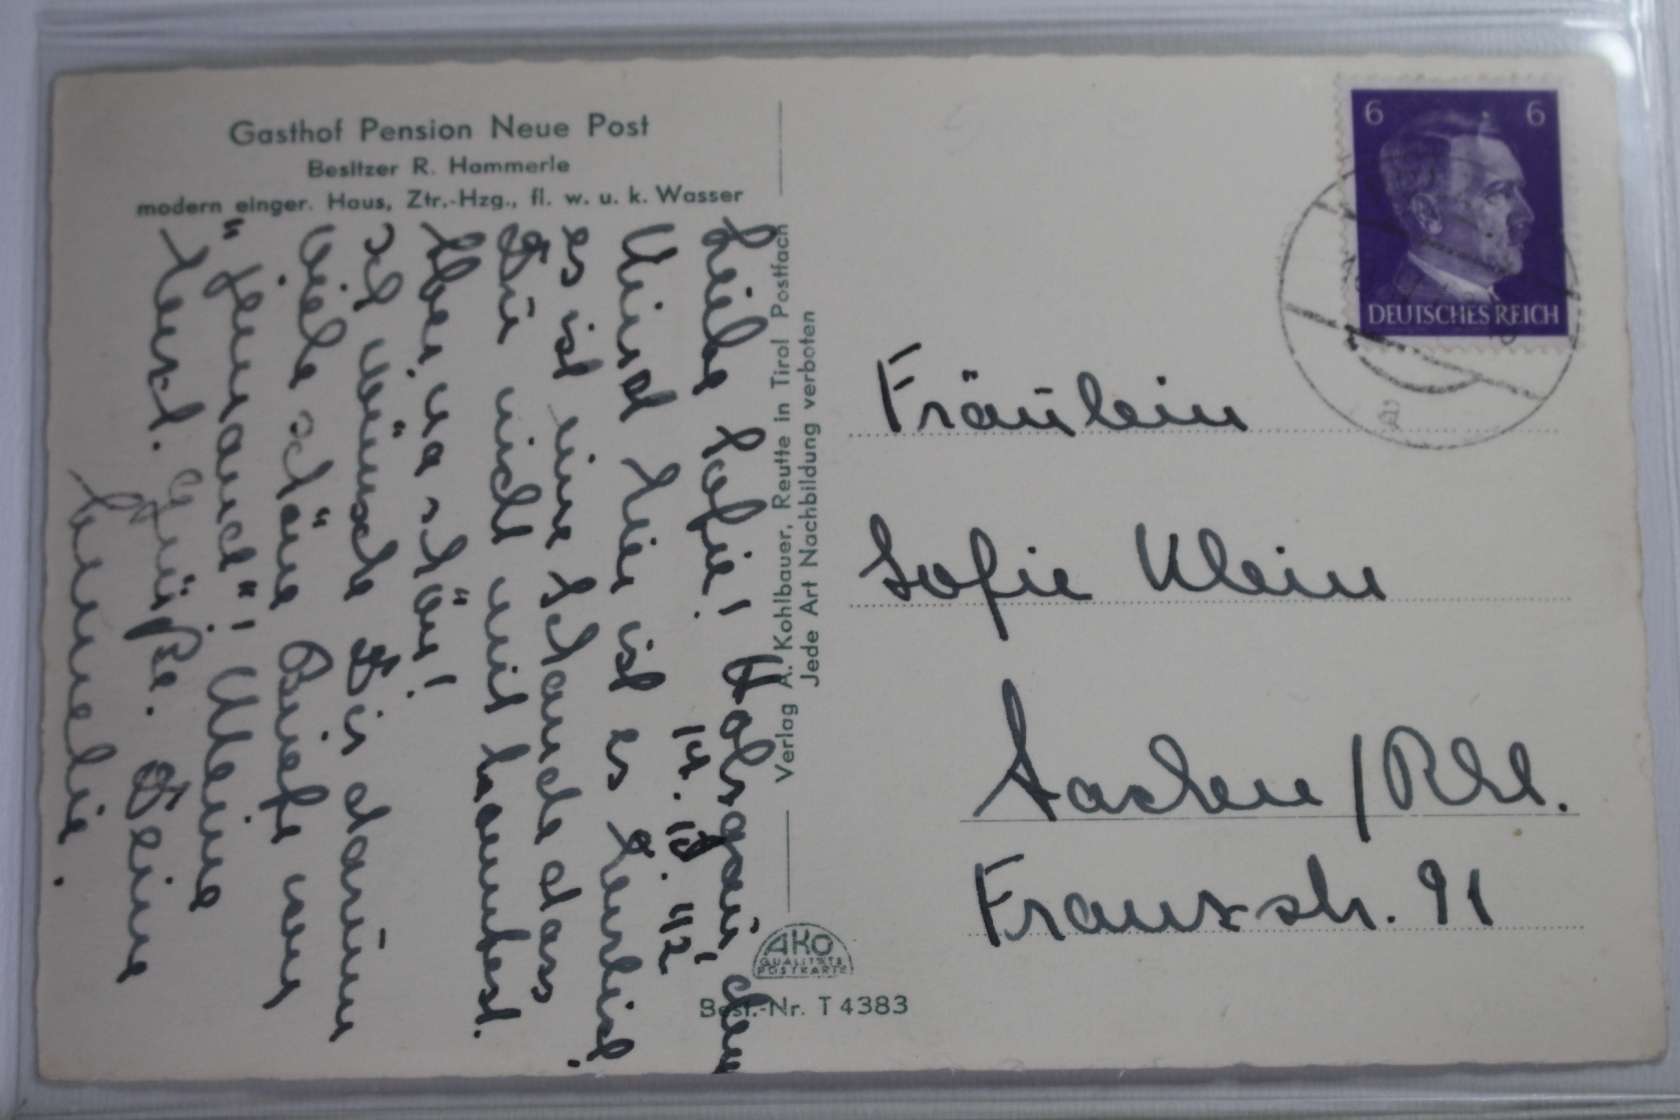 Gasthof Pension Neue Post
Besitzer R. Hammerle
modern einger. Haus, Ztr.-Hzg., fl. w. u. k. Wasser
Liebe Sofie! Holzgau, den
14. 10. 42
Kind hier ist es herrlich
es ist eine Schande dass
Du nicht mit kommtest.
Aber na schön!
ich wünsche Dir darum
viele schöne Briefe von
"jemand"! Meine
Herzl. Grüße. Deine
Annelie.
Verlag A. Kohlbauer, Reutte in Tirol Postfach
Jede Art Nachbildung verboten
AKO
QUALITÄTS
POSTKARTE
Best.-Nr. T 4383
6 6
DEUTSCHES REICH
Fräulein
Sofie Klein
Aachen / Rhl.
Franzstr. 91